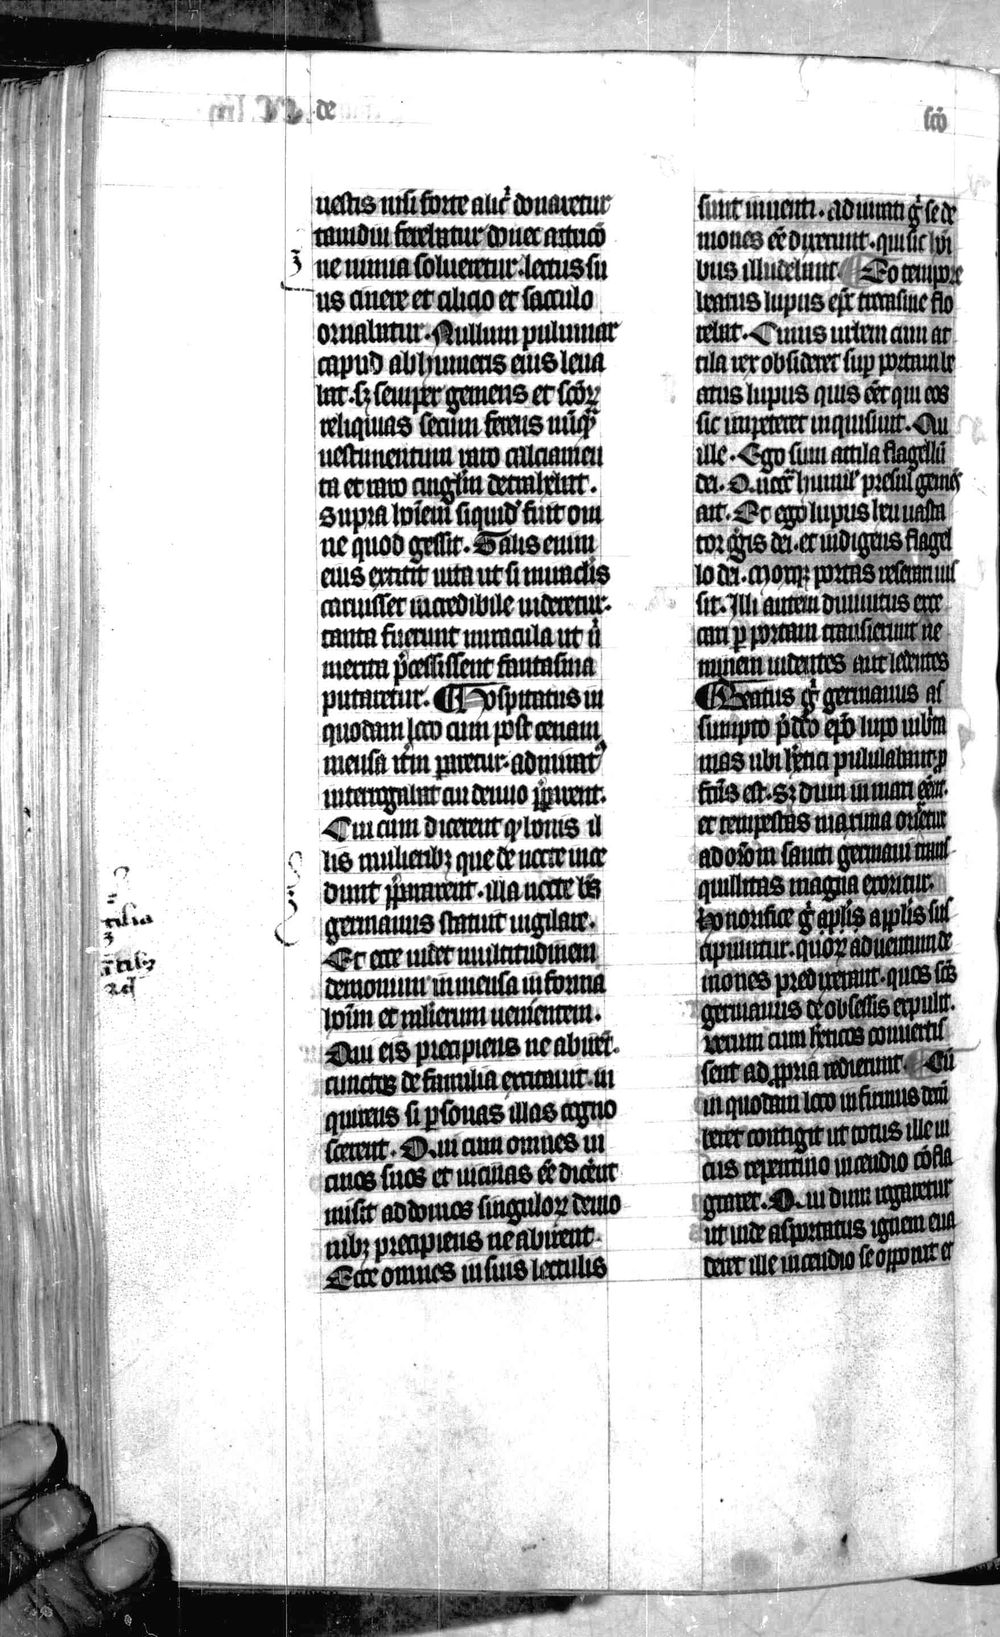 de
scō
uestis nisi forte alic̄ donaretur
tamdiu ferebatur donec antiicō
ne nimia solueretur. lectus su
us cinere et cilicio et sacculo
ornabatur. Nullum puluinar
capud ab humeris eius leua
bat. sꝫ semper gemens et scōꝝ
reliquias secum ferens nūqᷓ
uestimentum raro calciamen
ta et raro cingl̄m detrahebat.
Supra hōiem siquid fuit om
ne quod gessit. Talis enim
eius extitit uita ut si miraclis
caruisset incredibile uideretur.
tanta fuerunt miracula ut n̄
merita p̄cessissent fantasma
putaretur. Hospitatus in
quodam loco cum post cenam
mensa itm̄ pararetur. admirat᷒
interrogabat cui denuo p̄parent.
Cui cum dicerent qꝫ bonis il
lis mulieribꝫ que de nocte ince
dunt p̄pararent. illa nocte bt̄s
germanus statuit uigilare.
Et ecce uidet multitudinem
demonum in mensa in forma
hōim et mlierum uenientem.
Qui eis precipiens ne abirēt.
cunctos de familia excitauit. in
quirens si ꝑsonas illas cogno
scerent. Qui cum omnes ui
cinos suos et uicinas eē dicerēt
misit ad domos singuloꝝ demo
nibꝫ precipiens ne abirent.
Ecce omnes in suis lectulis
sunt inuenti. adiurati gͥ se de
mones eē dixerunt. qui sic hōi
bus illudebant. Eo tempore
beatus lupus ep̄c trecasine flo
rebat. Cuius urbem cum at
tila rex obsideret sup portam be
atus lupus quis eēt qui eos
sic impeteret inquisiuit. Cui
ille. Ego sum attila flagellū
dei. Cui ecōtra humil̄ presul gemēs
ait. Et ego lupus heu uasta
tor gͥgis dei. et indigens flagel
lo dei. Moxqꝫ portas reserari ius
sit. Illi autem diuinitus exce
cati ꝑ portam transierunt ne
minem uidentes aut ledentes
Beatus gͥ germanus as
sumpto p̄dc̄o ep̄o lupo in brita
nias ubi hētici pululabant. ꝓ
fectus est. Sꝫ dum in mari eēnt.
et tempestas maxima oriretur
ad orōm sancti germani tran
quillitas magna exoritur.
Honorifice gͥ a pl̄is a ppl̄is sus
cipiuntur. quoꝝ aduentum de
mones predixerant. quos scs̄
germanus de obsessis expulit.
Verum cum hēticos conuertis
sent ad ꝓpria redierunt. Cū
in quodam loco infirmus decū
beret contigit ut totus ille ui
cus repentino incendio cōfla
graret. Qui dum rogaretur
ut inde asportatus ignem eua
deret ille incendio se opponit et